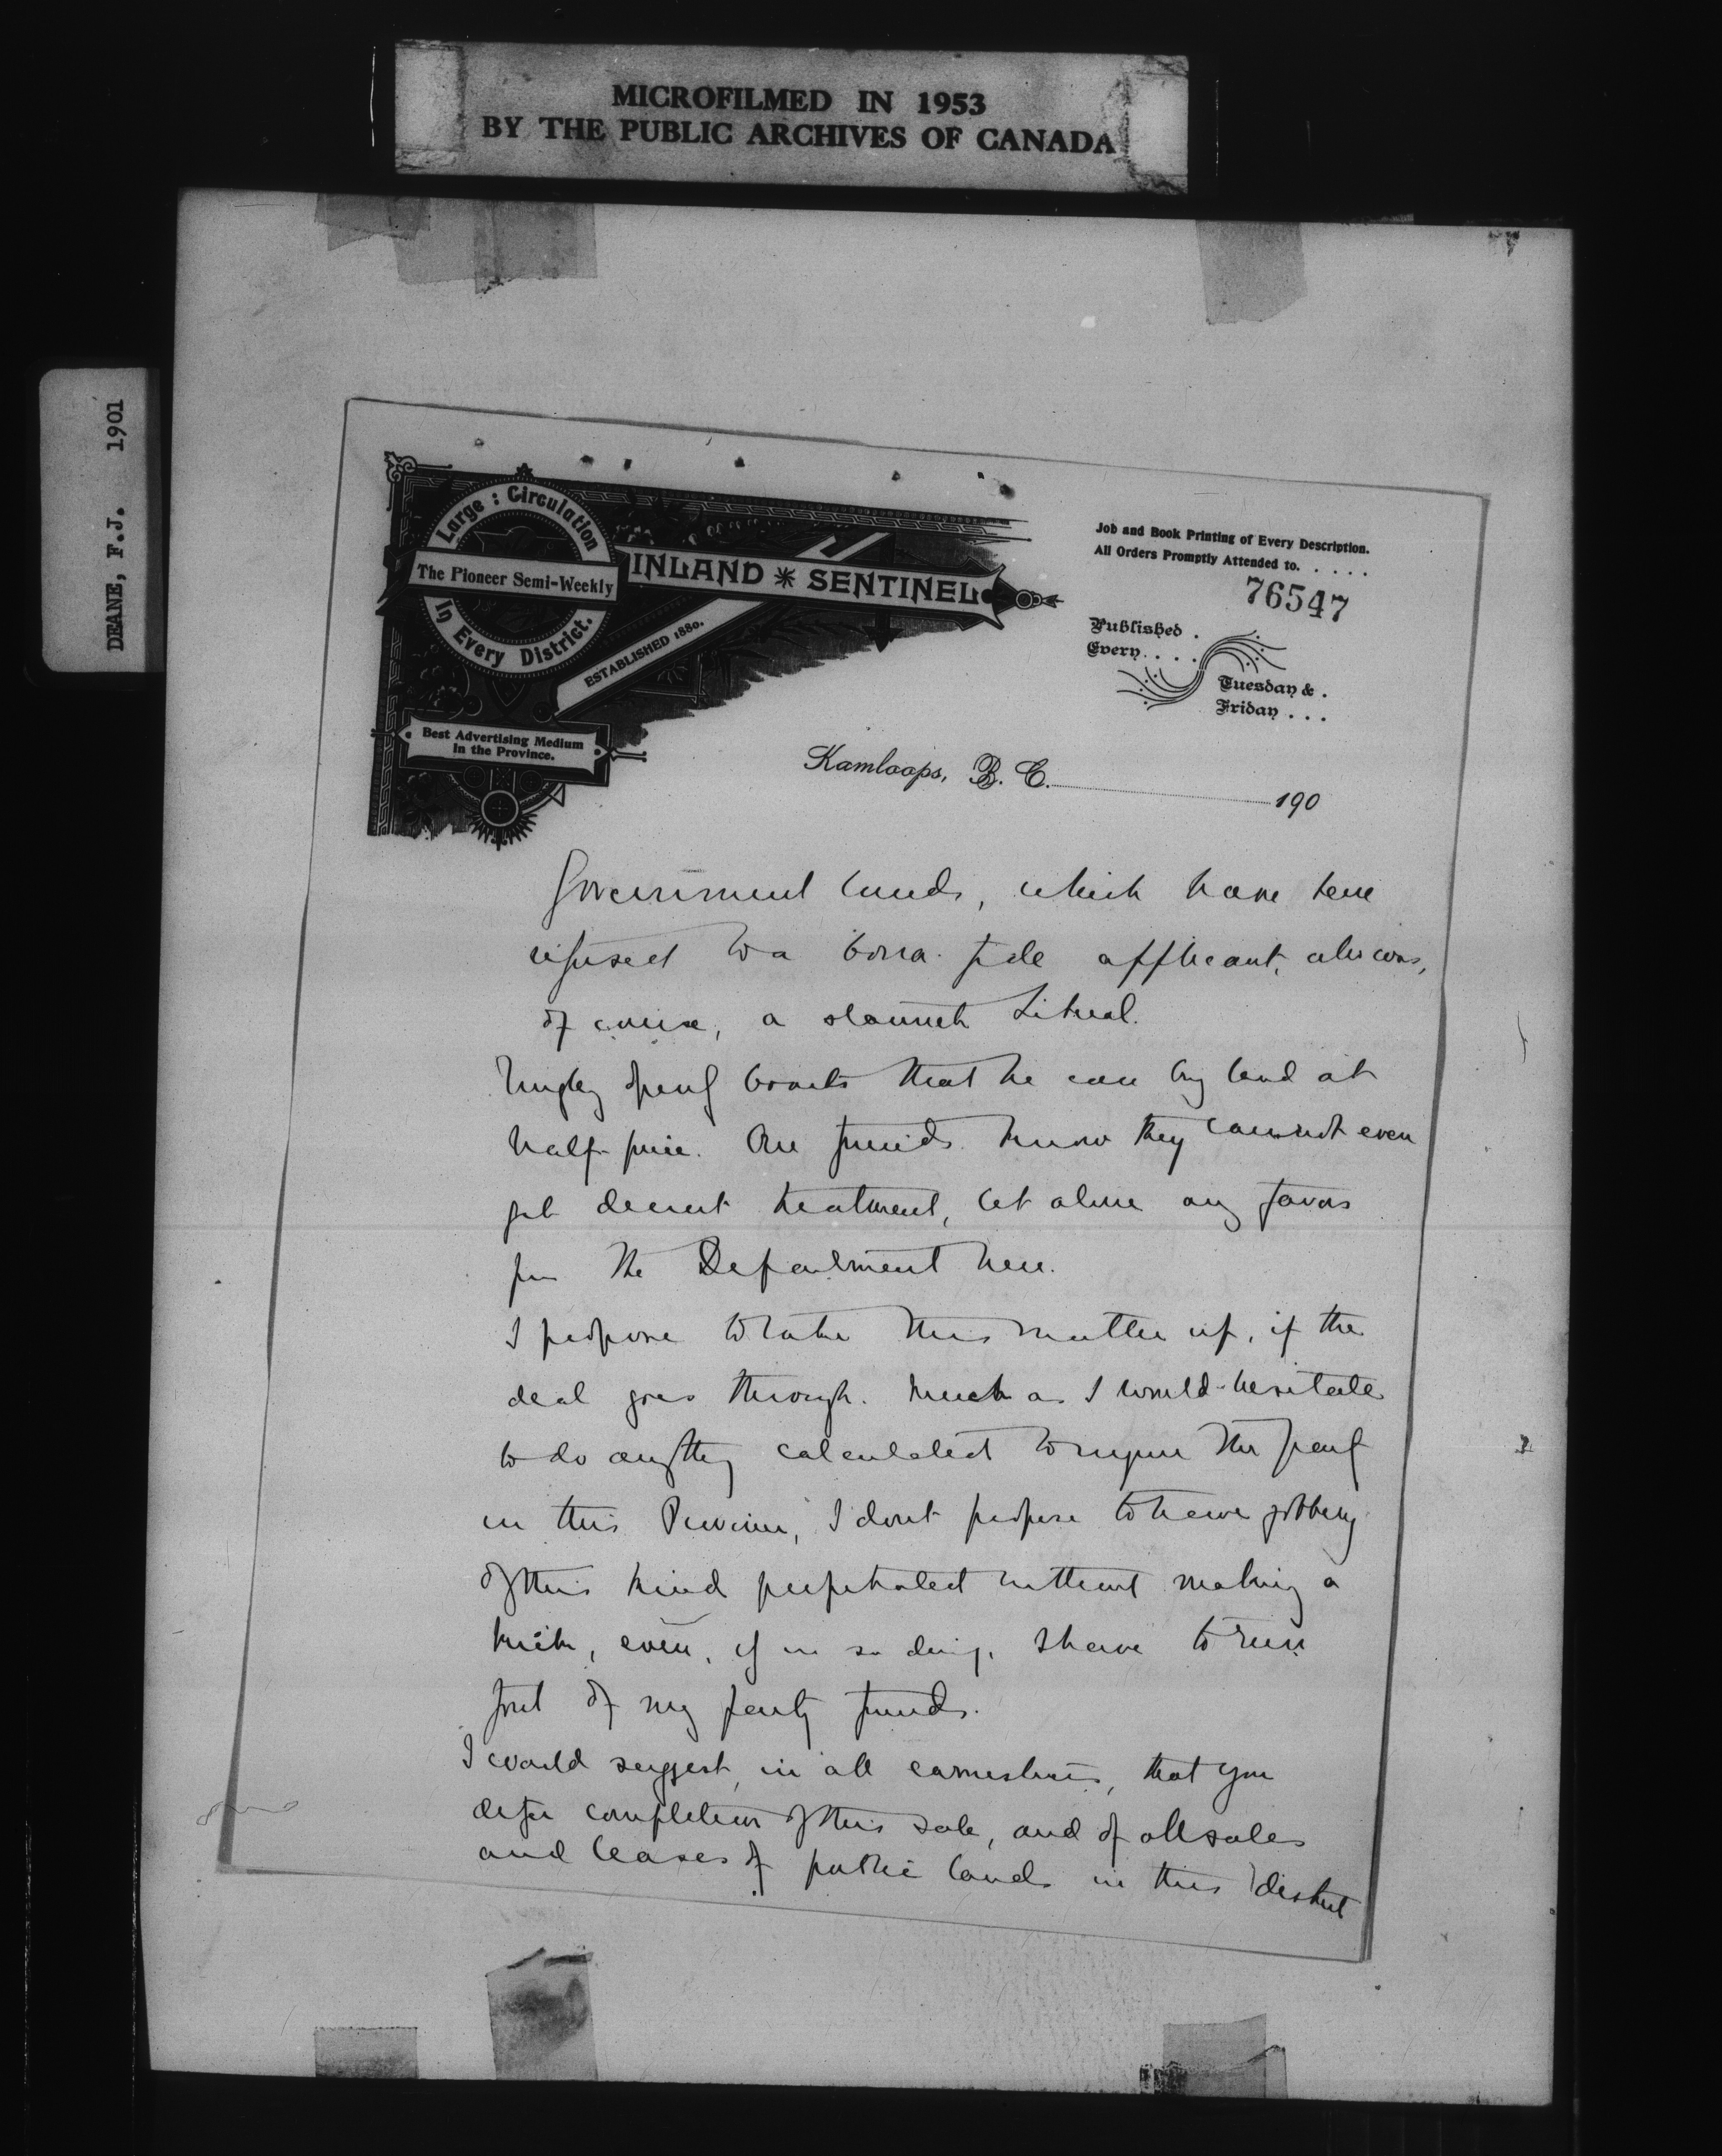 MICROFILMED IN 1953
BY THE PUBLIC ARCHIVES OF CANADA
DEANE, F.J. 1901
Large : Circulation
The Pioneer Semi-Weekly
In Every District.
INLAND * SENTINEL
ESTABLISHED 1880.
Best Advertising Medium
In the Province.
Job and Book Printing of Every Description.
All Orders Promptly Attended to. . . . .
76547
Published .
Every. . . .
Tuesday & .
Friday . . .
Kamloops, B. C. 190
Government lands, which have been
refused to a bona fide applicant, who was,
of course, a staunch Liberal.
openly boasts that he can buy land at
half price. Our friends know they cannot even
get decent treatment, let alone any favors
from the Department here.
I propose to take this matter up, if the
deal goes through. Much as I would hesitate
to do anything calculated to injure the party
in this Province, I dont propose to have jobbery
of this kind perpetrated without making a
kick, even, if in so doing, I have to run
foul of my party friends.
I would suggest, in all earnestness, that you
defer completion of this sale, and of all sales
and leases of public lands in this District